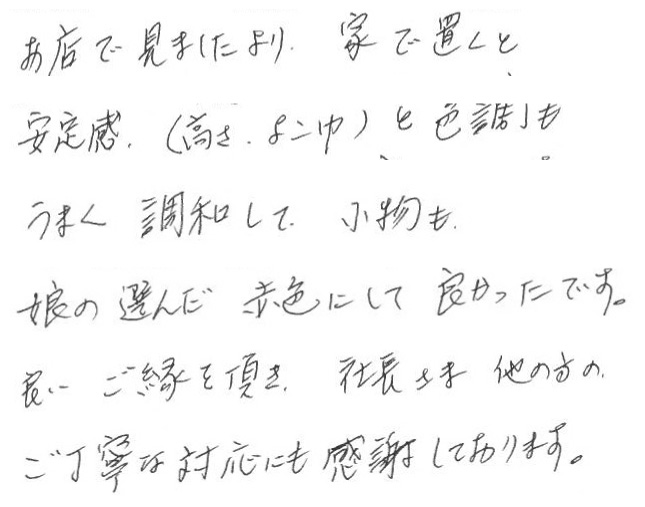 お店で見ましたより、家で置くと
安定感、(高さ、よこ巾)と色調も
うまく調和して、小物も、
娘の選んだ赤色にして良かったです。
良いご縁を頂き、社長さま他の方の、
ご丁寧な対応にも感謝しております。